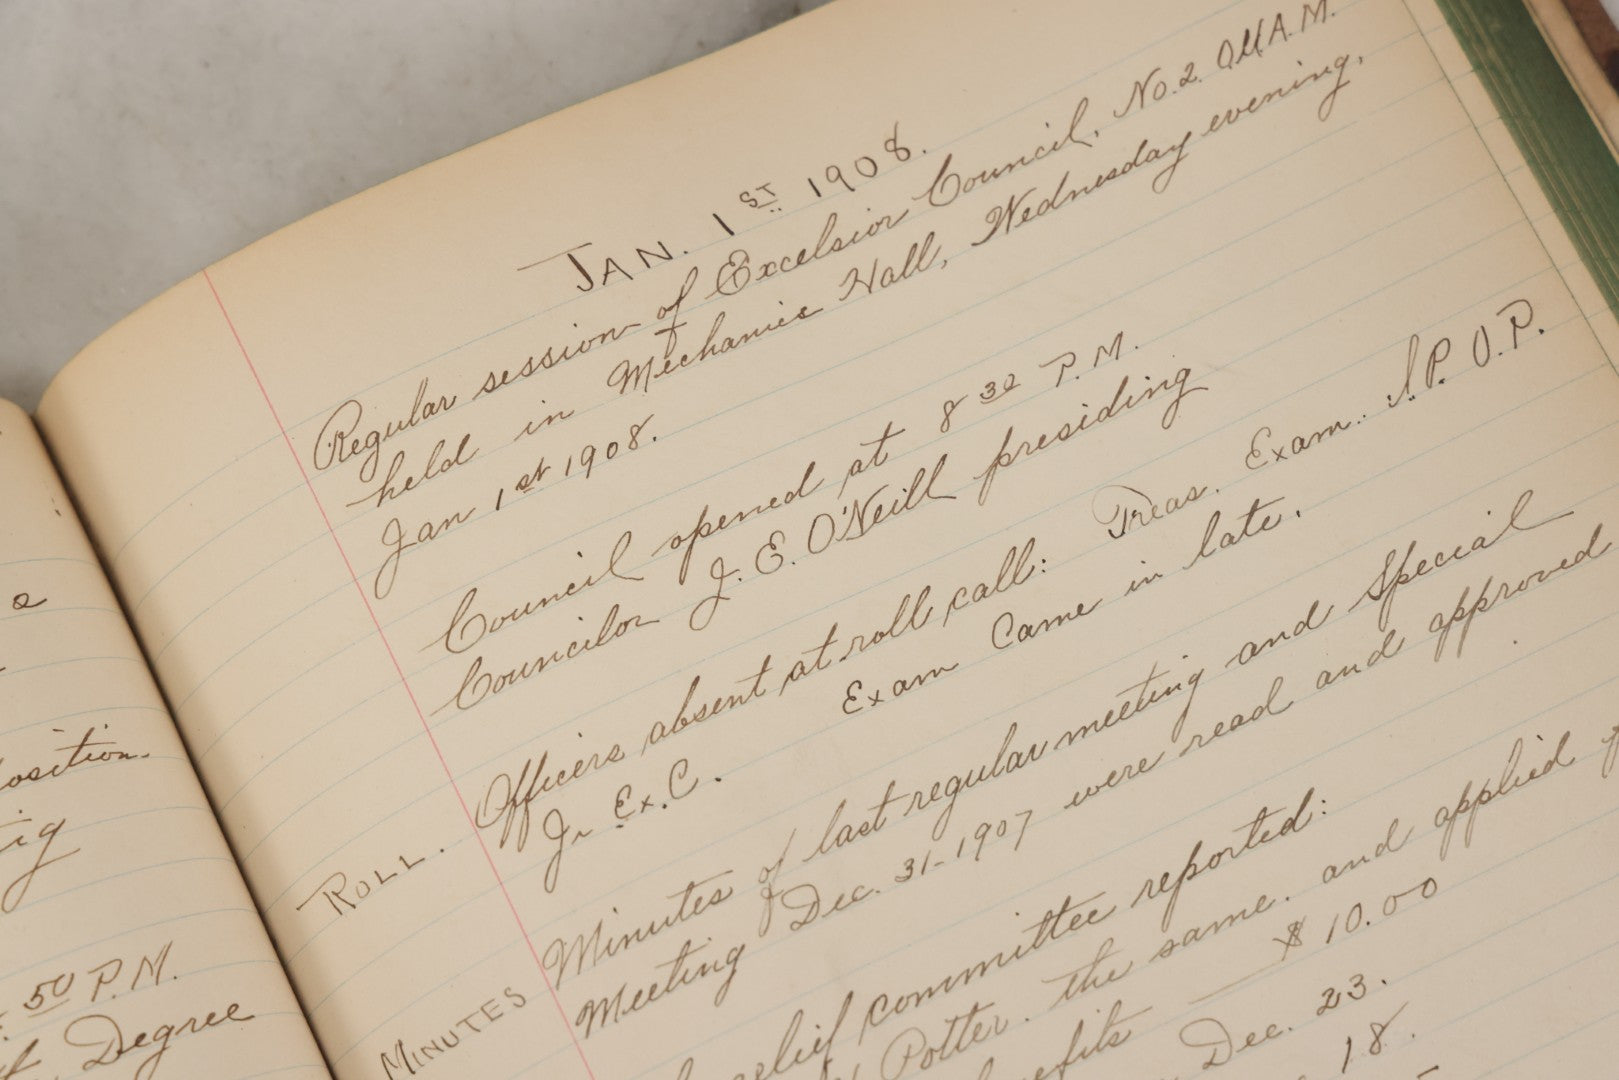 a
osition.
ig
50 P.M.
Degree
JAN. 1ST 1908.
Regular session of Excelsior Council, No. 2 OUAM.
held in Mechanic Hall, Wednesday evening,
Jan 1st 1908.
Council opened at 8 30 P.M.
Councilor J. E. O'Neill presiding
ROLL.
Officers absent at roll call: Treas. Exam. I.P. O.P.
Jr Ex. C. Exam Came in late.
MINUTES
Minutes of last regular meeting and Special
Meeting Dec. 31-1907 were read and approved
elief committee reported:
Potter. the same. and applied
efits $10.00
Dec. 23.
18.